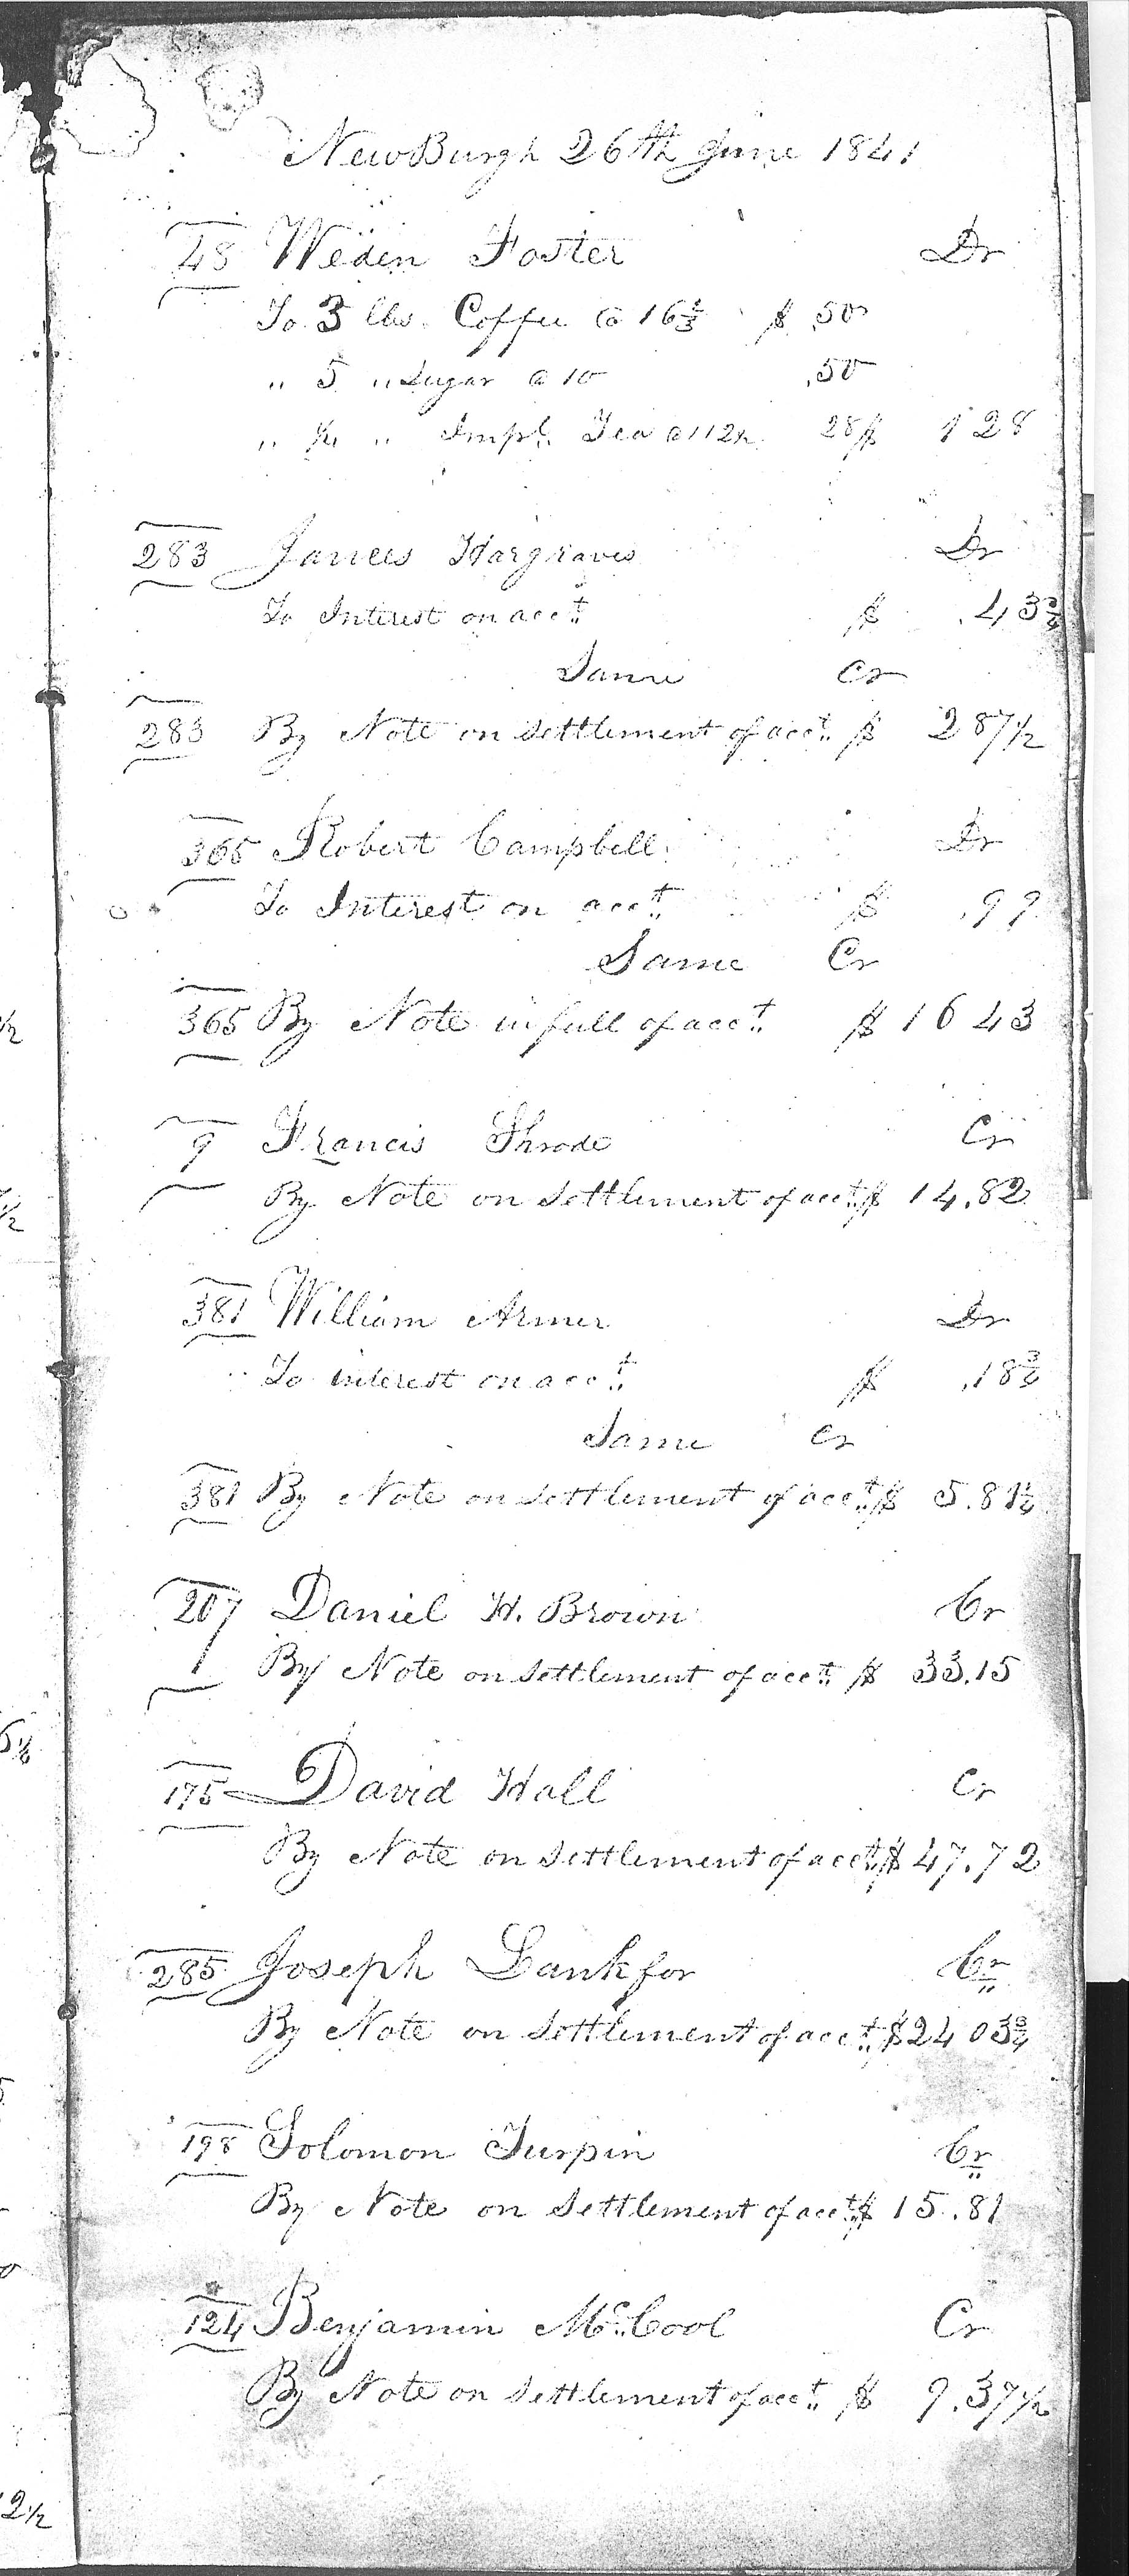 NewBurgh 26th June 1841
48 Weden Foster Dr
To 3 lbs. Coffee @ 16 2/3 $ .50
" 5 " Sugar @ 10 .50
" 1/4 " Impl. Tea @ 112½ 28 $ 1 28
283 James Hargraves Dr
To Interest on acct $ .43¾
Same Cr
283 By Note on Settlement of acct $ 2 87½
365 Robert Campbell Dr
To Interest on acct $ .99
Same Cr
365 By Note in full of acct $ 16 43
9 Francis Shrode Cr
By Note on Settlement of acct $ 14.82
381 William Armer Dr
To interest on acct $ .18¾
Same Cr
381 By Note on Settlement of acct $ 5.81¼
207 Daniel H. Brown Cr
By Note on Settlement of acct $ 33.15
175 David Hall Cr
By Note on Settlement of acct $ 47.72
285 Joseph Lankfor Cr
By Note on Settlement of acct $ 24 03¾
198 Solomon Turpin Cr
By Note on Settlement of acct $ 15.81
124 Benjamin McCool Cr
By Note on Settlement of acct $ 9.37½